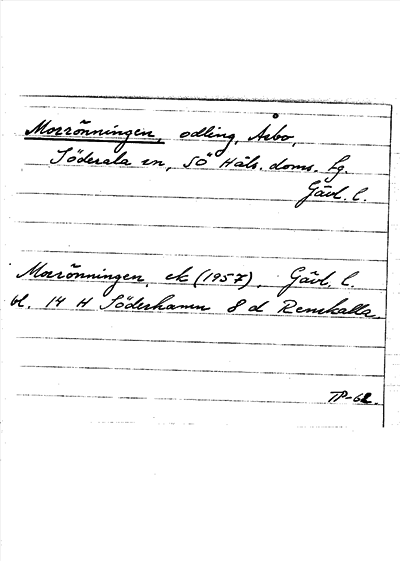 Morrönningen, odling, Åsbo,
Söderala sn, SÖ Häls. doms. fg.
Gävl. l.
Morrönningen, ek (1957), Gävl. l.
bl. 14 H Söderhamn 8 d Renskalla.
TP-62.